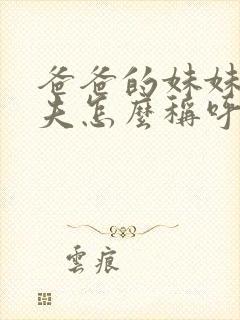 爸爸的妹妹
夫怎麼稱呼
雲痕